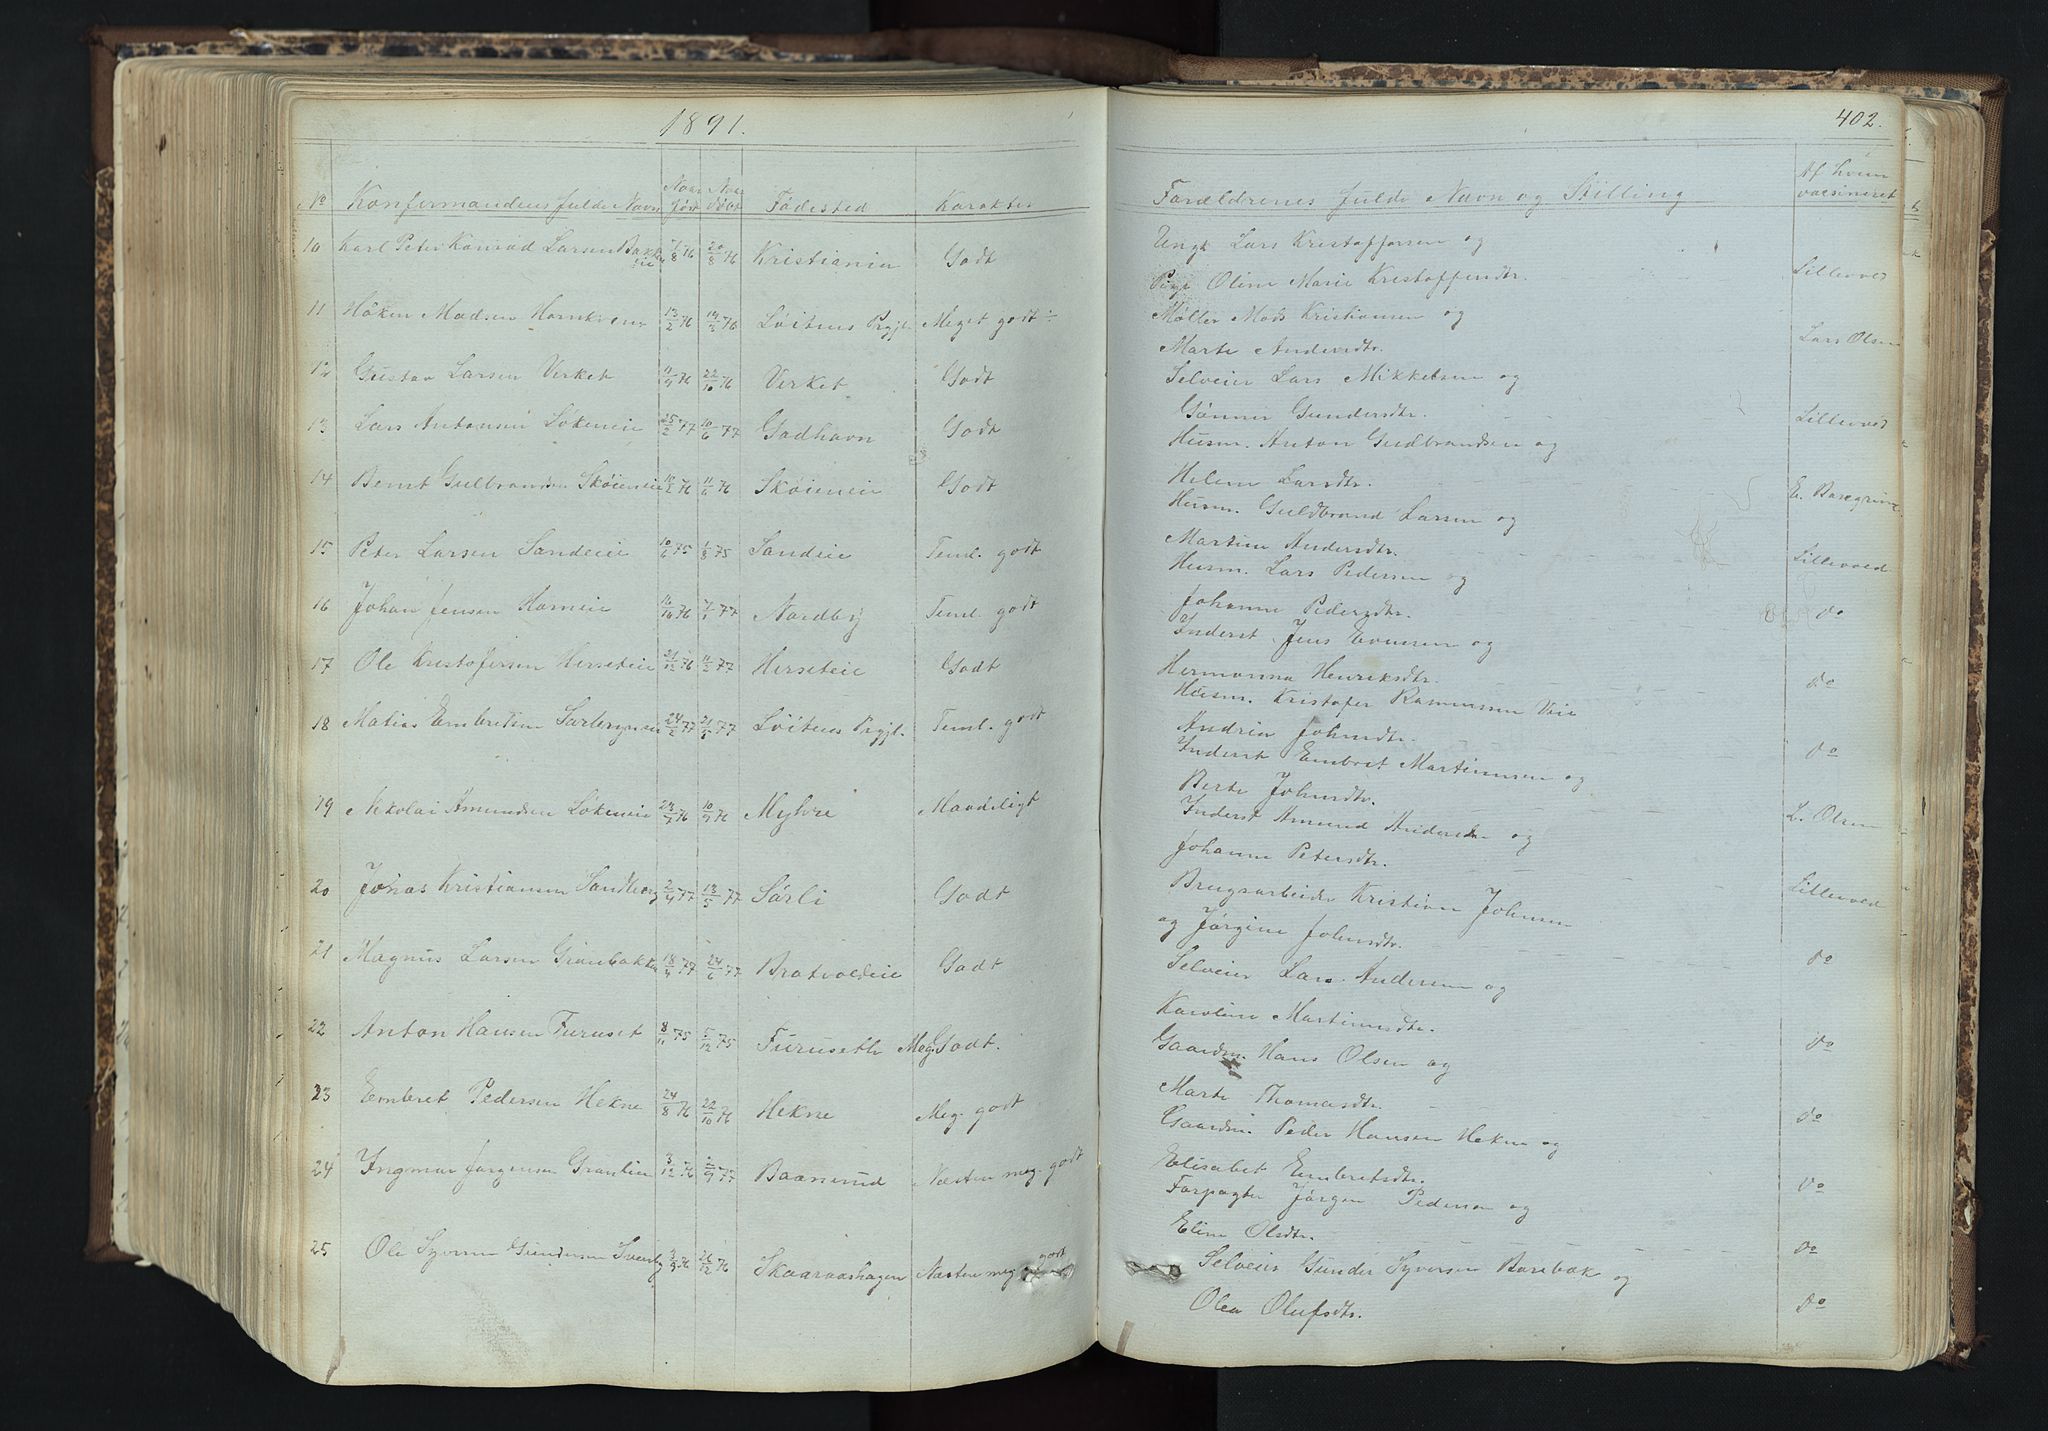 1891.
402.
No Konfirmandens fulde Navn Naar født Naar døbt Fødested Karakter Forældrenes fulde Navn og Stilling Af hvem vaccineret
10 Karl Peter Konrad Larsen 7/8 76 20/8 76 Kristiania Godt Ungk. Lars Kristoffersen og
Pige Oline Marie Kristoffersdtr. Lillevold
11 Håken Madsen Hornkveng 13/2 76 76 Løitens Prgjl. Meget godt ÷ Møller Mads Kristiansen og
Marte Andersdtr. Lars Olsen
12 Gustav Larsen Verket 76 22/10 76 Verket Godt Selveier Lars Mikkelsen og
Gønner Gundersdtr. Lillevold
13 Lars Antonsen Løkeneie 25/2 77 10/6 77 Godhavn Godt Husm. Anton Gudbrandsen og
Helene Larsdtr.
14 Bernt Gulbrandsen Skøieneie 10/2 76 11/6 76 Skøieneie Godt Husm. Guldbrand Larsen og
Martine Andersdtr. Lillevold
15 Peter Larsen Sandeie 10/6 75 1/8 75 Sandeie Teml. godt Husm. Lars Pedersen og
Johanne Pedersdtr. do
16 Johan Jensen Horneie 16/10 76 7/1 77 Nordby Teml. godt Inderst Jens Evensen og
Hermanna Henriksdtr. do
17 Ole Kristofersen Herseteie 21/12 76 11/2 77 Herseteie Godt Husm. Kristofer Rasmussen
Andrea Johnsdtr. do
18 Matias Embretsen 24/2 77 77 Løitens Prgjl. Teml. godt Inderst Embret Martinusen og
Berte Johnsdtr. L. Olsen
19 Nikolai Amundsen Løkeneie 76 10/9 76 Myhre Maadeligt Inderst Amund Andersen og
Johanne Petersdtr.
20 Jonas Kristiansen Sandberg 2/4 77 13/5 77 Sørli Godt Brugsarbeider Kristian Johnsen Lillevold
og Jørgine Johnsdtr.
21 Magnus Larsen Granbakken 18/4 77 24/6 77 Bratvoldeie Godt Selveier Lars Andersen og do
Karoline Martinusdtr.
22 Anton Hansen Furuset 8/11 75 5/12 75 Furuseth Meg. Godt. Gaardm. Hans Olsen og do
Marte Thomasdtr.
23 Embret Pedersen Hekne 24/8 76 22/10 76 Hekne Meg. godt Gaardm. Peder Hansen Hekne og do
Elisabet Embretsdtr.
24 Ingmar Jørgensen Granlien 3/12 76 77 Baanerud Næsten meg. godt Forpagter Jørgen Pedersen og do
Eline Olsdtr.
25 Ole Syversen Gundersen Sveaby 76 26/12 76 Skaaraashagen Næsten meg. godt Selveier Gunder Syversen Borebæk og do
Olea Olufsdtr. do